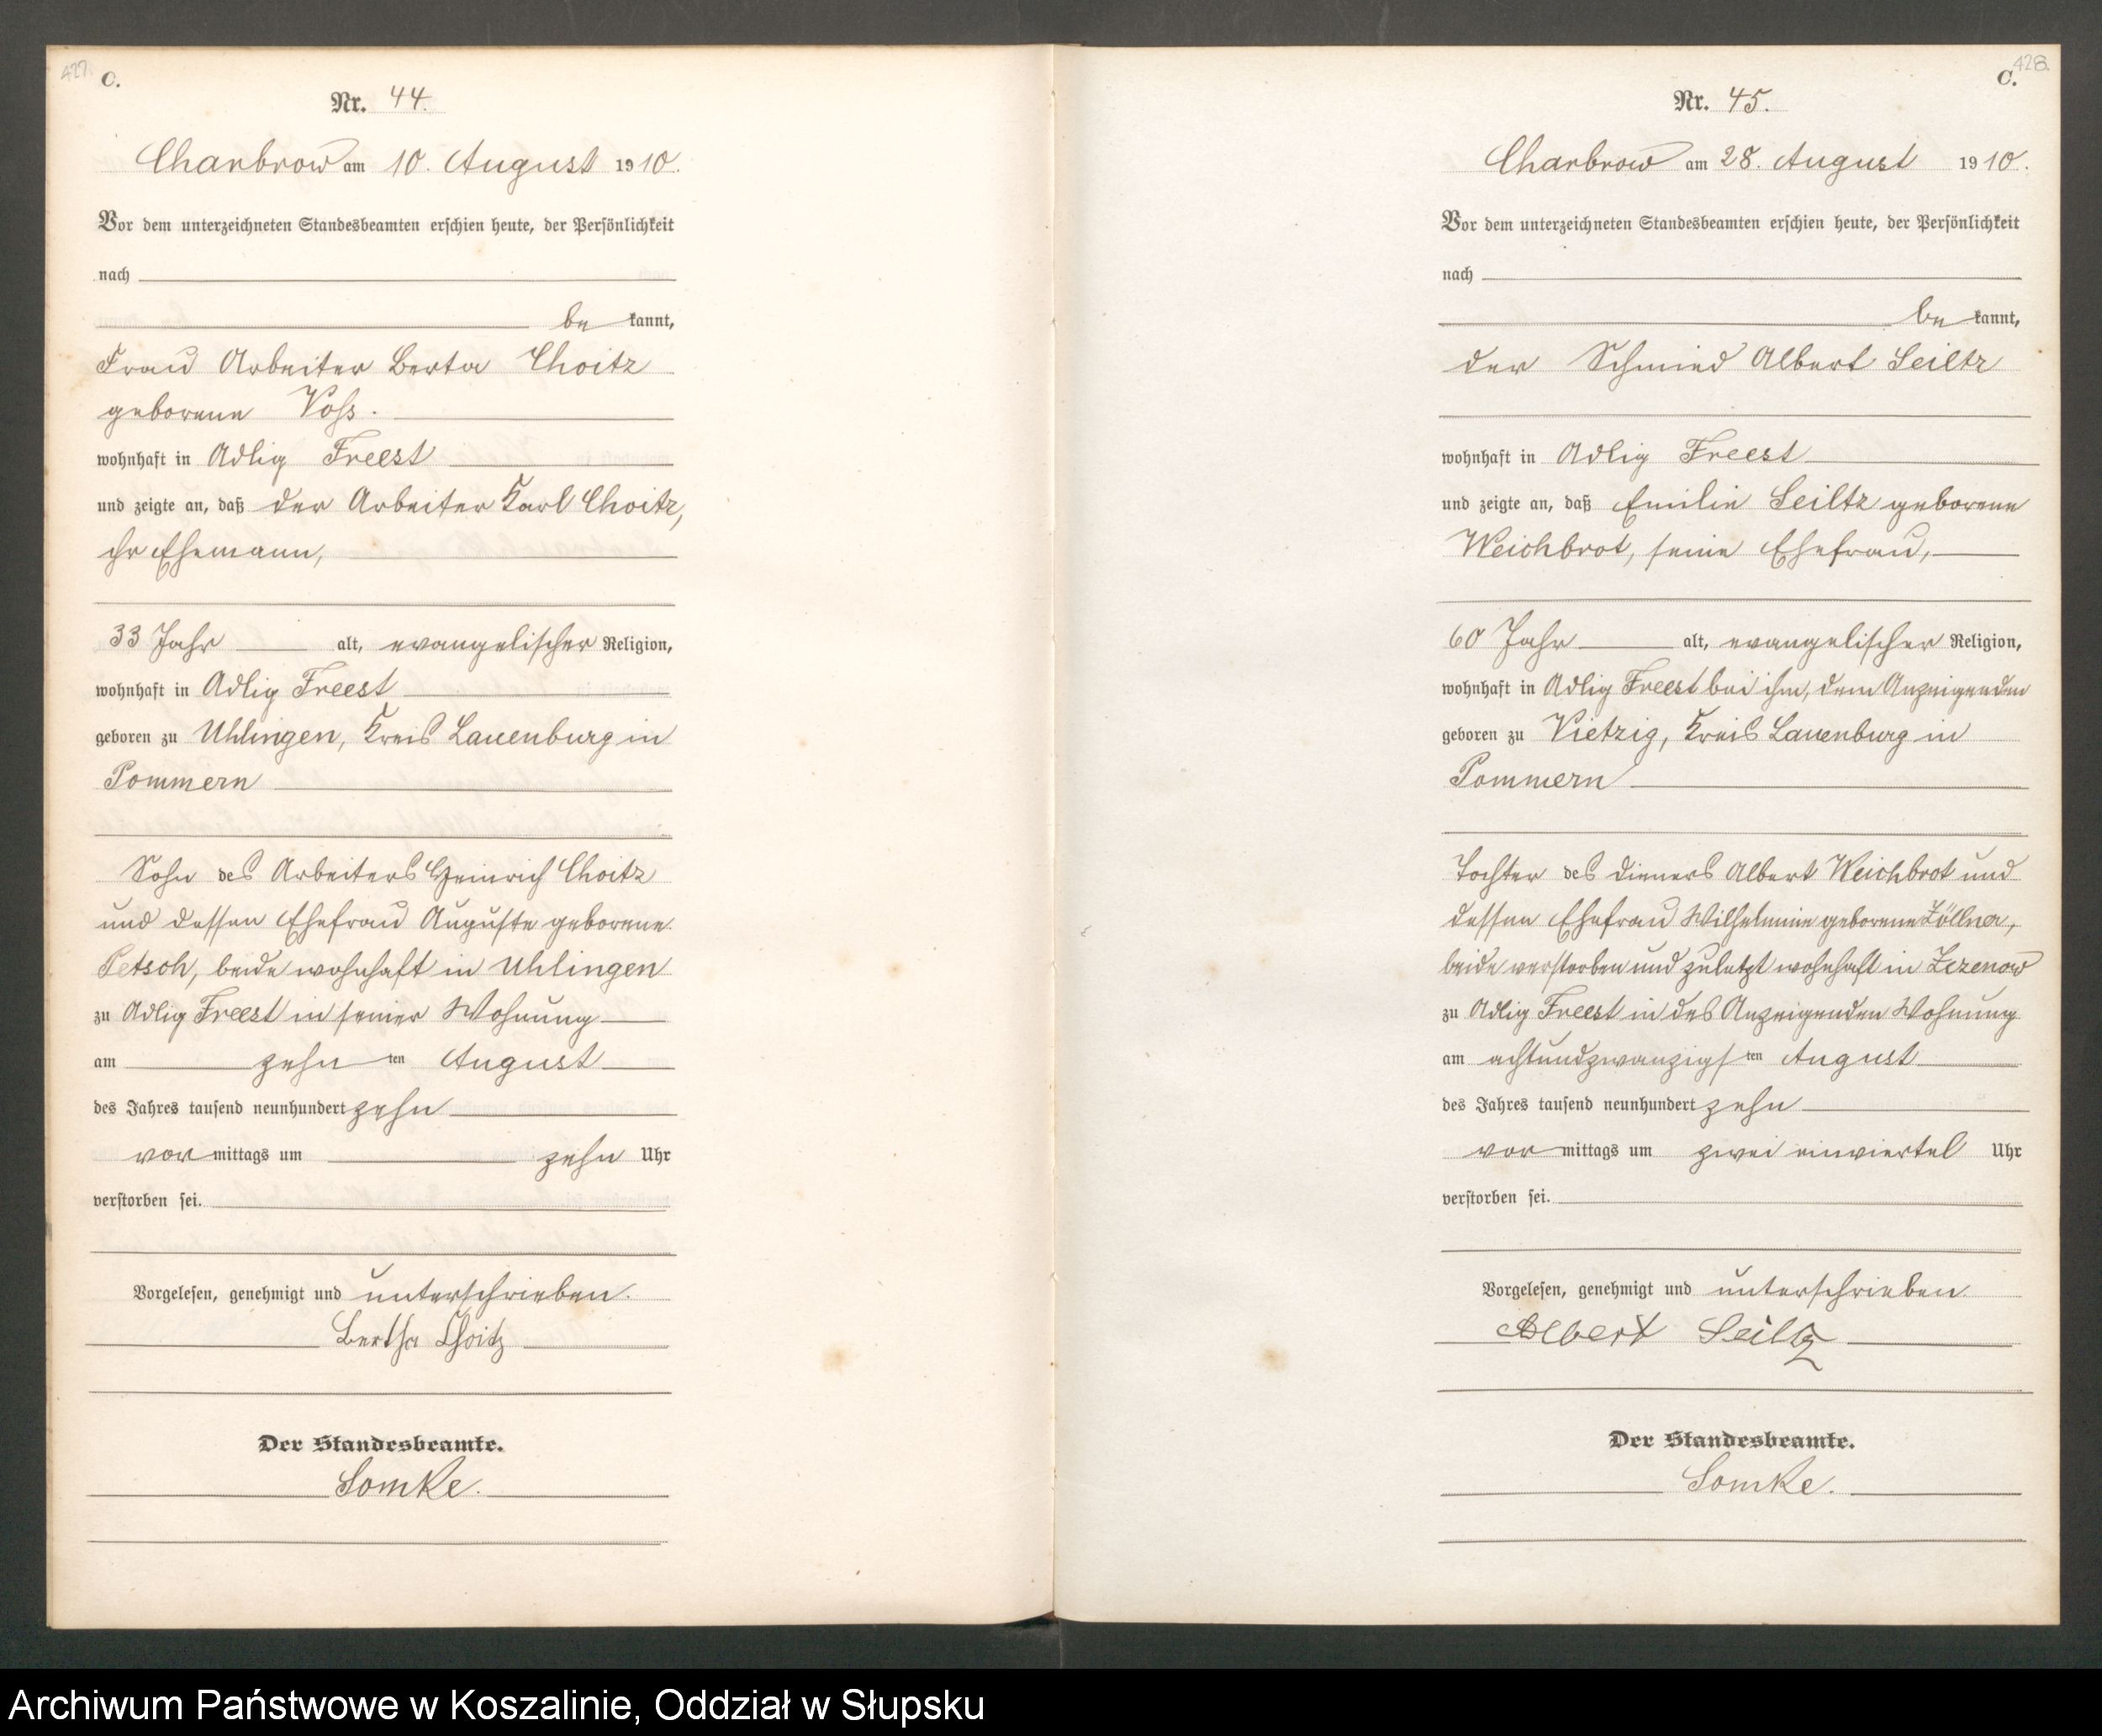 427.
C.
Nr. 44.
Charbrow am 10. August 1910.
Vor dem unterzeichneten Standesbeamten erschien heute, der Persönlichkeit
nach
be kannt,
Frau Arbeiter Berta Choitz
geborene Voß.
wohnhaft in Adlig Freest
und zeigte an, daß der Arbeiter Karl Choitz,
ihr Ehemann,
33 Jahr alt, evangelischer Religion,
wohnhaft in Adlig Freest
geboren zu Uhlingen, Kreis Lauenburg in
Pommern
Sohn des Arbeiters Heinrich Choitz
und dessen Ehefrau Auguste geborene
Petsch, beide wohnhaft in Uhlingen
zu Adlig Freest in seiner Wohnung
am zehn ten August
des Jahres tausend neunhundert zehn
vor mittags um zehn Uhr
verstorben sei.
Vorgelesen, genehmigt und unterschrieben.
Bertha Choitz
Der Standesbeamte.
Somke.
428.
C.
Nr. 45.
Charbrow am 28. August 1910.
Vor dem unterzeichneten Standesbeamten erschien heute, der Persönlichkeit
nach
be kannt,
der Schmied Albert Seiltz
wohnhaft in Adlig Freest
und zeigte an, daß Emilie Seiltz geborene
Weichbrot, seine Ehefrau,
60 Jahr alt, evangelischer Religion,
wohnhaft in Adlig Freest bei ihm, dem Anzeigenden
geboren zu Vietzig, Kreis Lauenburg in
Pommern
Tochter des Dieners Albert Weichbrot und
dessen Ehefrau Wilhelmine geborene Zöllner,
beide verstorben und zuletzt wohnhaft in Zezenow
zu Adlig Freest in des Anzeigenden Wohnung
am achtundzwanzigs ten August
des Jahres tausend neunhundert zehn
vor mittags um zwei einviertel Uhr
verstorben sei.
Vorgelesen, genehmigt und unterschrieben
Albert Seiltz
Der Standesbeamte.
Somke.
Archiwum Państwowe w Koszalinie, Oddział w Słupsku